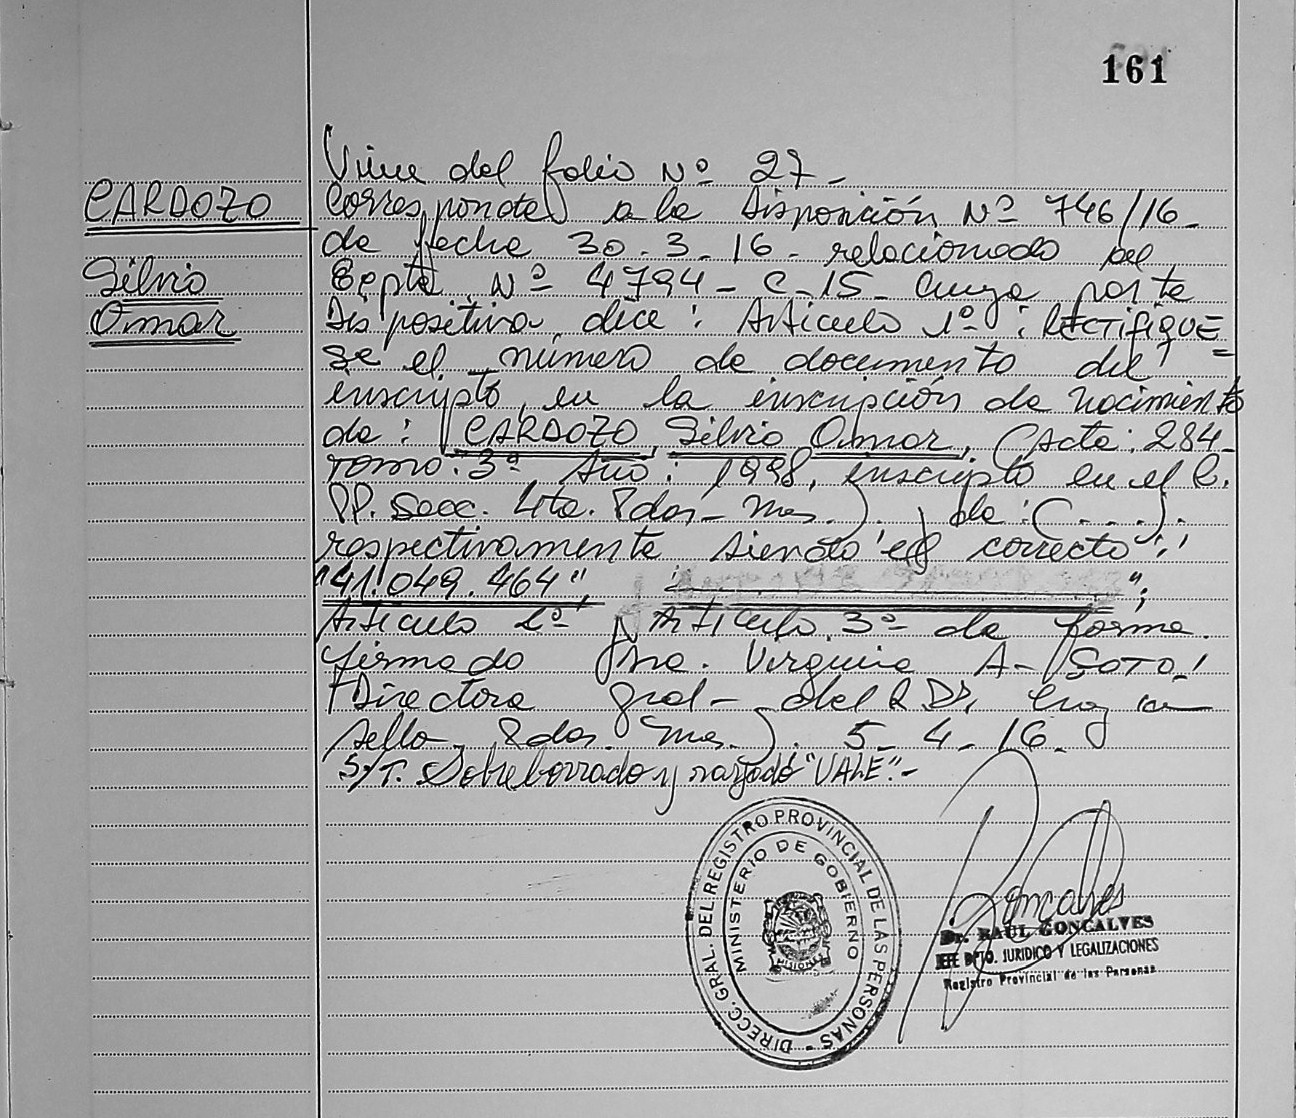 161
Viene del folio Nº 27-
CARDOZO
Corresponde a la Disposición Nº 746/16-
de fecha 30-3-16- relacionado al
Silvio
Expte. Nº 4794-C-15- Cuya parte
Omar
Dispositiva dice: Artículo 1º: RECTIFIQUE=
se el número de documento del
inscripto en la inscripción de nacimiento
de: CARDOZO, Silvio Omar, (Acta: 284-
Tomo: 3º Año: 1998, inscripto en el R.
PP. Secc. 4ta. Pdas- Mnes.). , de: (....).
respectivamente siendo el correcto:
"41.049.464",
";
Artículo 2º Artículo 3º de forma.
firmado Virginia A- SOTO-
Directora Gral- del R.P.P. hay un
sello. Pdas. Mnes.). 5-4-16-
S/T. Sobreborrado y raspado "VALE".-
DIRECC. GRAL. DEL REGISTRO PROVINCIAL DE LAS PERSONAS -
MINISTERIO DE GOBIERNO
MISIONES
Goncalves
Dr. RAUL GONCALVES
JEFE DPTO. JURIDICO Y LEGALIZACIONES
Registro Provincial de las Personas